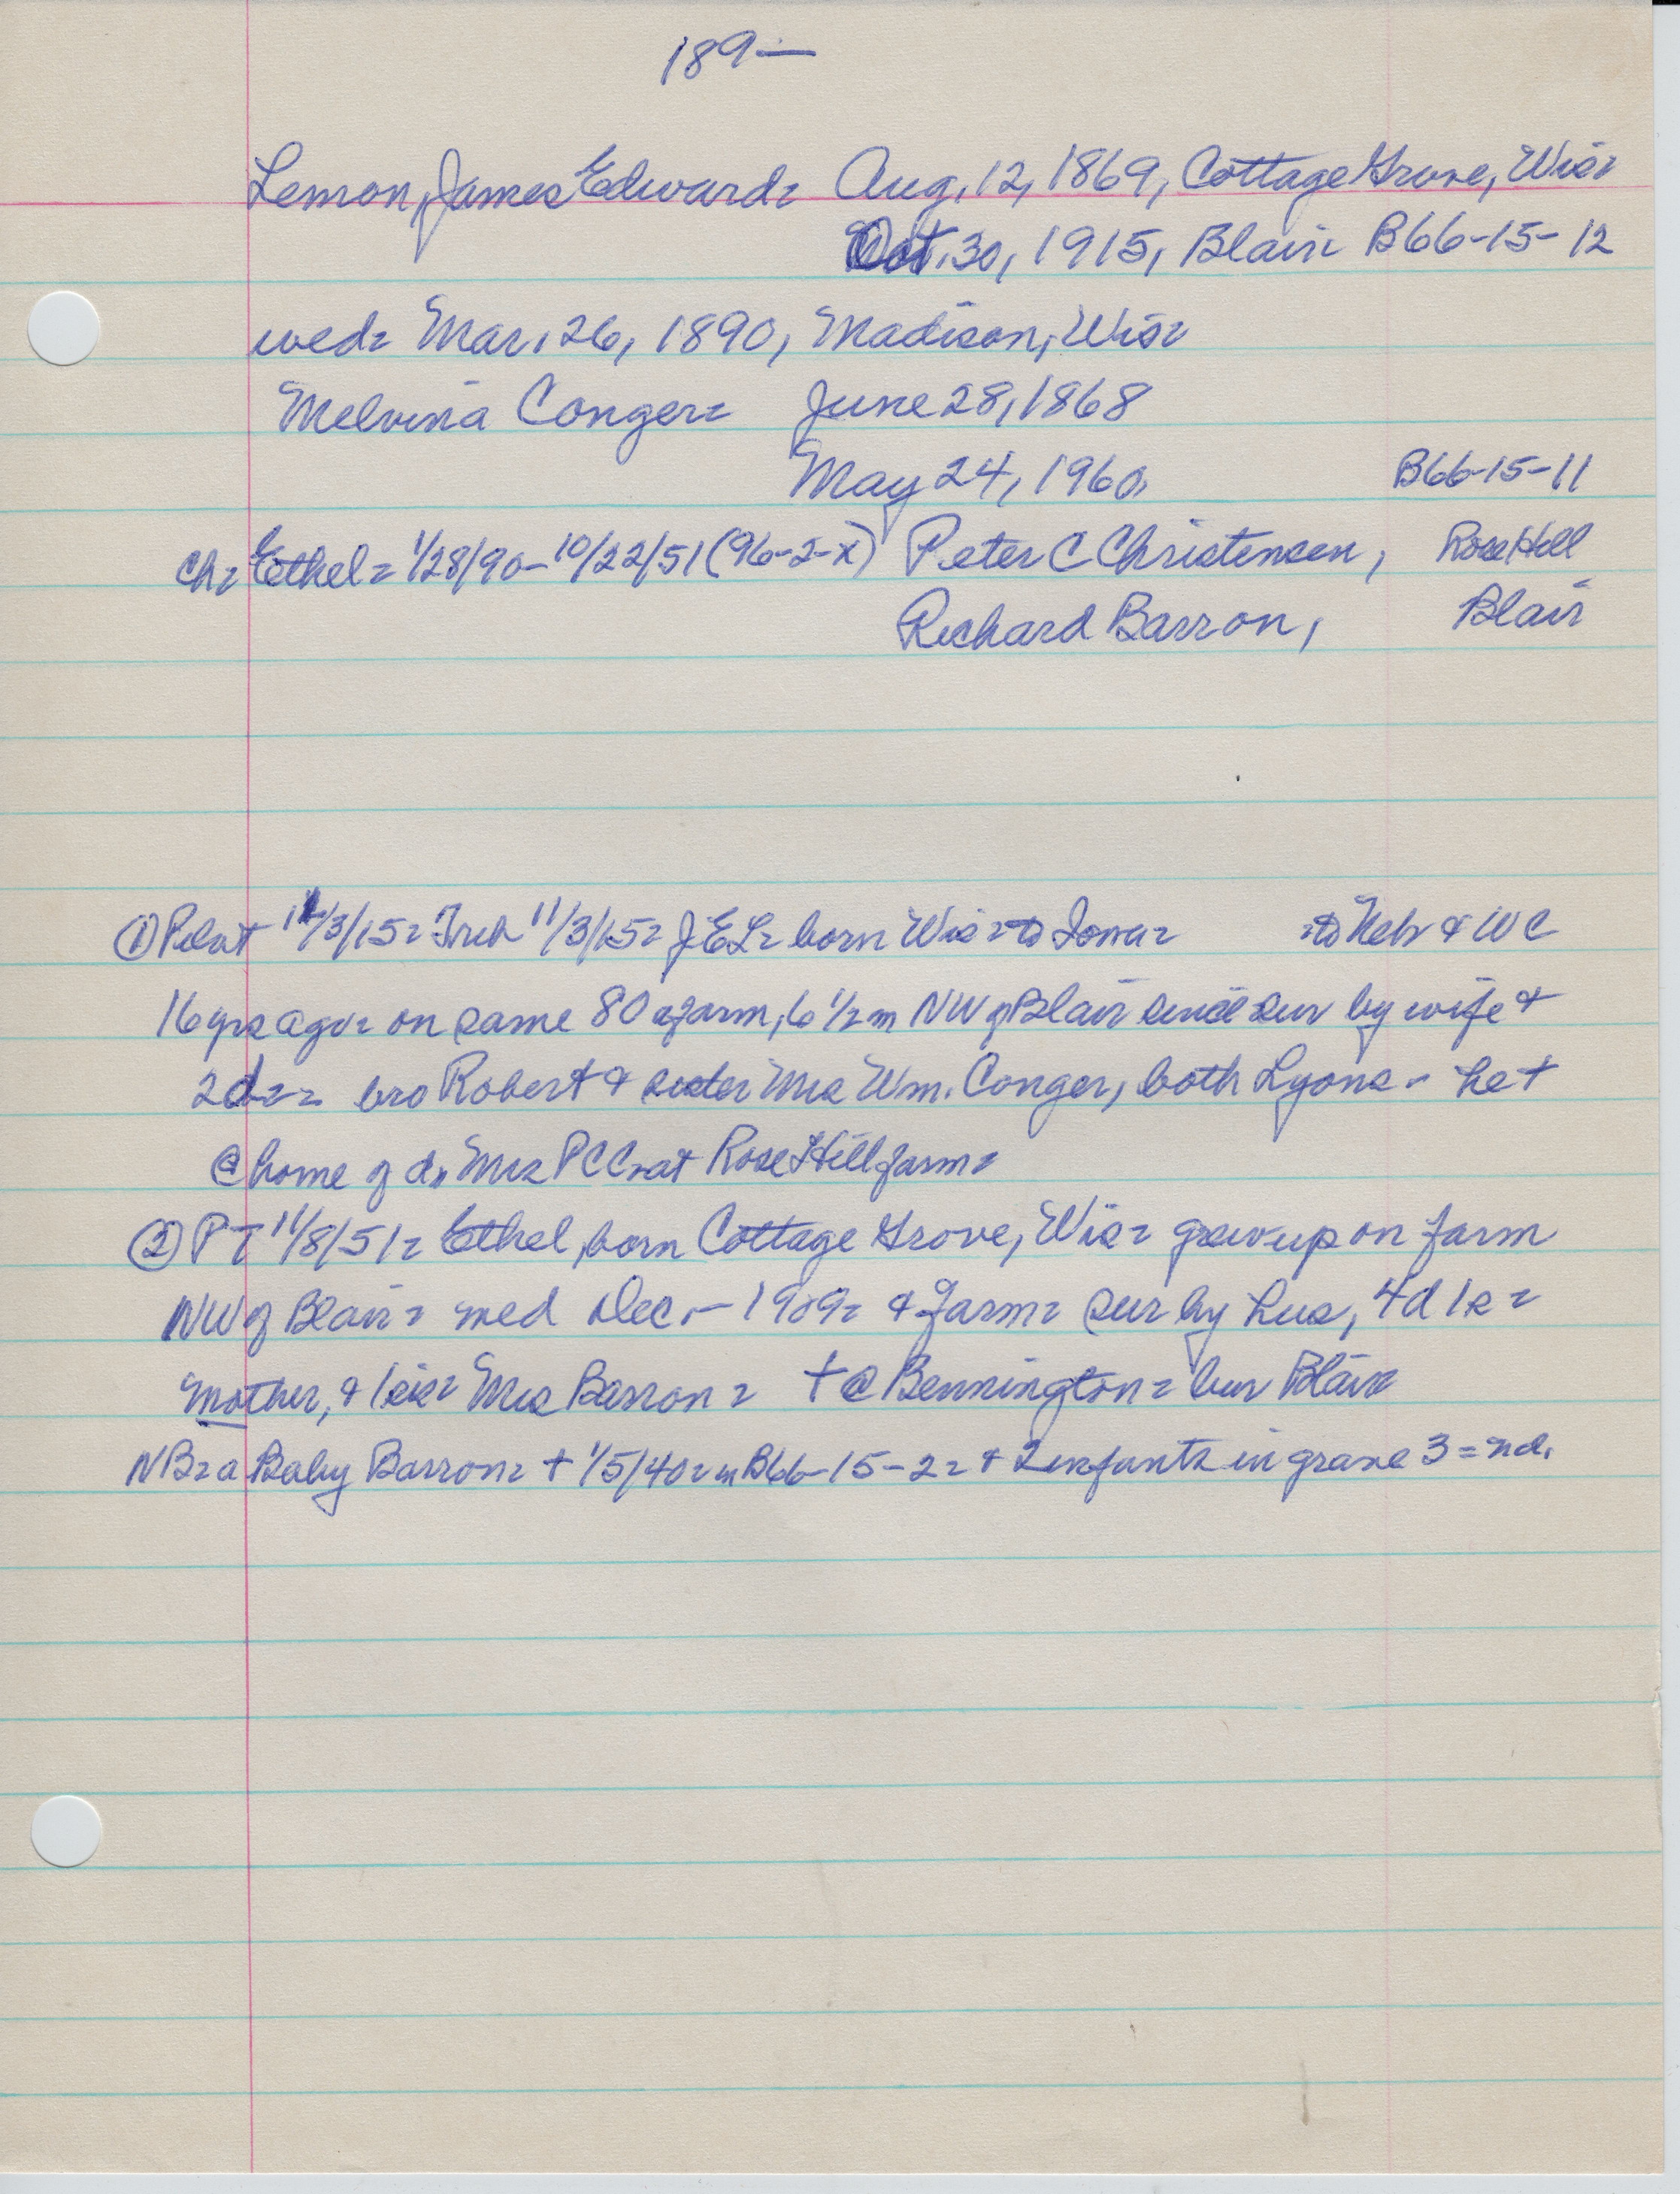 189-
Lemon, James Edward= Aug, 12, 1869, Cottage Grove, Wis=
Oct. 30, 1915, Blair= B66-15-12
wed= Mar, 26, 1890, Madison, Wis=
Melvina Conger= June 28, 1868
May 24, 1960, B66-15-11
Ch= Ethel= 1/28/90-10/22/51 (96-2-x) Peter C Christensen, Rose Hill
Richard Barron, Blair
① Pilot 11/3/15= Trib 11/3/15= JEL= born Wis= to Iowa= =to Neb & WC
16 yrs ago= on same 80 a farm, 6 1/2 m NW of Blair since sur by wife &
2d== bro Robert & sister Mrs Wm. Conger, both Lyons - he +
@ home of d, Mrs PCC=at Rose Hill farm=
② PT 11/8/51= Ethel, born Cottage Grove, Wis= grew up on farm
NW of Blair= wed Dec.- 1909= & farm= sur by hus, 4d 1s=
mother, & 1 sis= Mrs Barron= + @ Bennington= bur Blair
NB= a Baby Barron= + 1/5/40= in B66-15-2= & 2 infants in grave 3=nd.